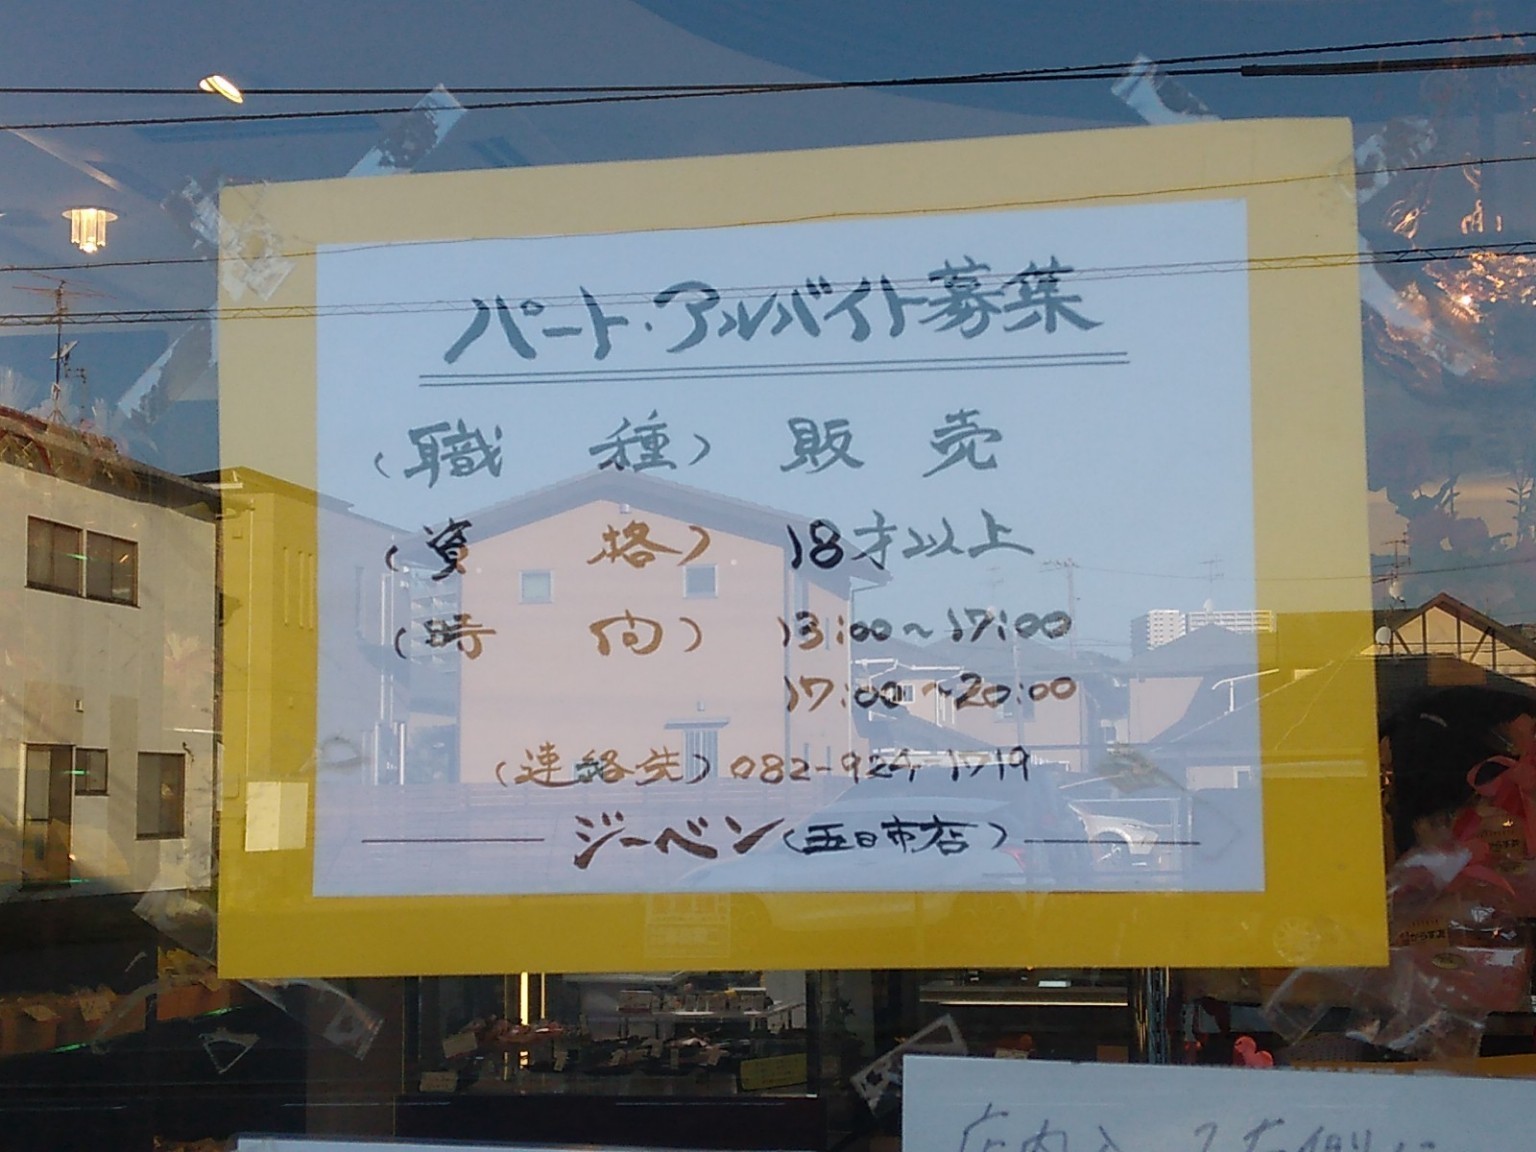 パート・アルバイト募集
(職 種) 販 売
(資 格) 18才以上
(時 向) 13:00~17:00
17:00~20:00
(連絡先) 082-924-1719
ジーベン(五日市店)
店内入